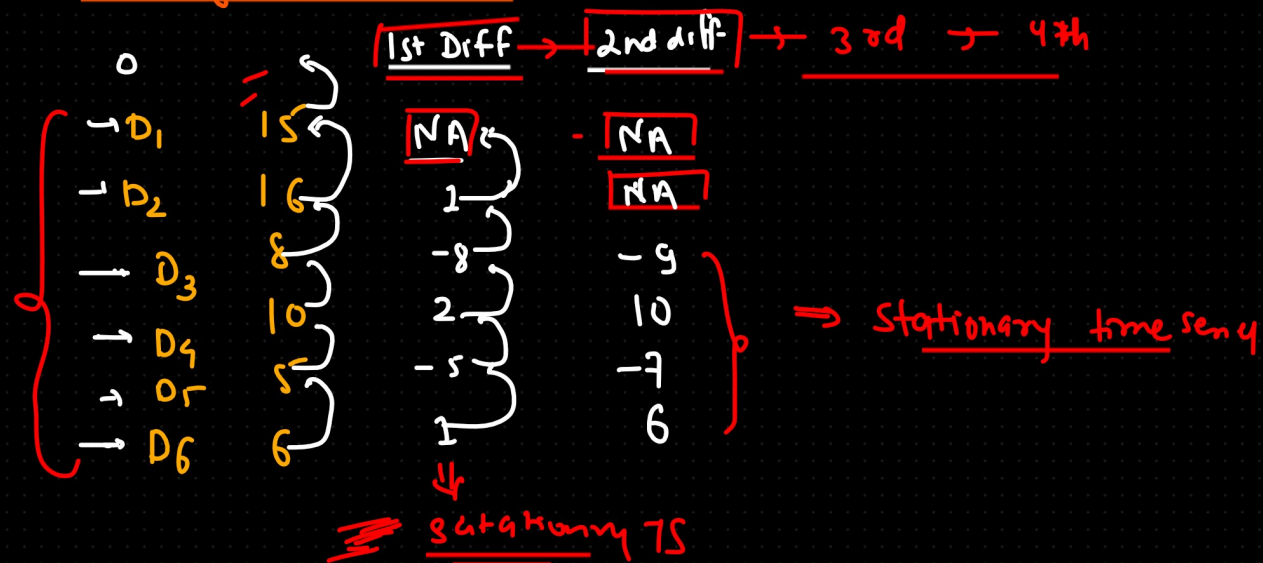 1st Diff → 2nd diff → 3rd → 4th
0
D1 15 NA - NA
D2 16 1 NA
D3 8 -8 -9
D4 10 2 10
D5 5 -5 -7
D6 6 1 6
⇒ Stationary time
TS